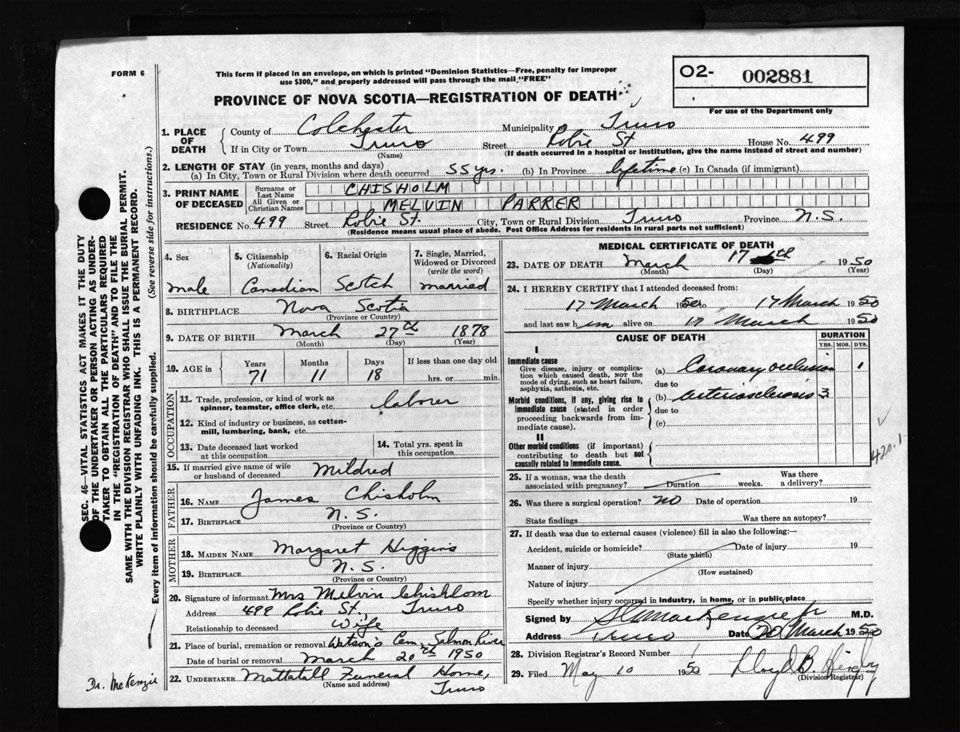 FORM 6
This form if placed in an envelope, on which is printed "Dominion Statistics—Free, penalty for improper
use $300," and properly addressed will pass through the mail "FREE"
O2- 002881
For use of the Department only
PROVINCE OF NOVA SCOTIA—REGISTRATION OF DEATH
1. PLACE OF DEATH County of Colchester Municipality Truro
If in City or Town Truro Street Robie St House No. 499
(Name) (If death occurred in a hospital or institution, give the name instead of street and number)
2. LENGTH OF STAY (in years, months and days)
(a) In City, Town or Rural Division where death occurred 55 yrs. (b) In Province lifetime (c) In Canada (if immigrant)
3. PRINT NAME OF DECEASED Surname or Last Name CHISHOLM
All Given or Christian Names MELVIN PARRER
RESIDENCE No. 499 Street Robie St. City, Town or Rural Division Truro Province N.S.
(Residence means usual place of abode. Post Office Address for residents in rural parts not sufficient)
4. Sex 5. Citizenship (Nationality) 6. Racial Origin 7. Single, Married, Widowed or Divorced (write the word)
male Canadian Scotch married
8. BIRTHPLACE Nova Scotia
(Province or Country)
9. DATE OF BIRTH March 27th 1878
(Month) (Day) (Year)
10. AGE in Years Months Days If less than one day old
71 11 18 hrs. or min.
OCCUPATION
11. Trade, profession, or kind of work as spinner, teamster, office clerk, etc. laborer
12. Kind of industry or business, as cotton-mill, lumbering, bank, etc.
13. Date deceased last worked at this occupation
14. Total yrs. spent in this occupation
15. If married give name of wife or husband of deceased Mildred
FATHER
16. NAME James Chisholm
17. BIRTHPLACE N.S.
(Province or Country)
MOTHER
18. MAIDEN NAME Margaret Higgins
19. BIRTHPLACE N.S.
(Province or Country)
20. Signature of informant Mrs Melvin Chishlom
Address 499 Robie St. Truro
Relationship to deceased Wife
21. Place of burial, cremation or removal Watson's Cem. Salmon River
Date of burial or removal March 20th 1950
22. UNDERTAKER Mattatall Funeral Home, Truro
(Name and address)
MEDICAL CERTIFICATE OF DEATH
23. DATE OF DEATH March 17 th 1950
(Month) (Day) (Year)
24. I HEREBY CERTIFY that I attended deceased from:
17 March 1950 to 17 March 1950
and last saw him alive on 17 March 1950
CAUSE OF DEATH DURATION
YRS. MOS. DYS.
I
Immediate cause
Give disease, injury or complication which caused death, NOT the mode of dying, such as heart failure, asphyxia, asthenia, etc.
(a) Coronary occlusion 1
due to
Morbid conditions, if any, giving rise to immediate cause (stated in order proceeding backwards from immediate cause).
(b) arteriosclerosis 3
due to
(c)
II
Other morbid conditions (if important) contributing to death but not causally related to immediate cause.
420.1
25. If a woman, was the death associated with pregnancy? Duration weeks. Was there a delivery?
26. Was there a surgical operation? no Date of operation 19
State findings Was there an autopsy?
27. If death was due to external causes (violence) fill in also the following:—
Accident, suicide or homicide? Date of injury 19
(State which)
Manner of injury
(How sustained)
Nature of injury
Specify whether injury occurred in industry, in home, or in public place
Signed by MacKenzie Jr M.D.
Address Truro Date 20 March 1950
28. Division Registrar's Record Number
29. Filed May 10 1950 Lloyd B.
(Division Registrar)
SEC. 46—VITAL STATISTICS ACT MAKES IT THE DUTY
OF THE UNDERTAKER OR PERSON ACTING AS UNDER-
TAKER TO OBTAIN ALL THE PARTICULARS REQUIRED
IN THE "REGISTRATION OF DEATH" AND TO FILE THE
SAME WITH THE DIVISION REGISTRAR WHO SHALL ISSUE THE BURIAL PERMIT.
WRITE PLAINLY WITH UNFADING INK. THIS IS A PERMANENT RECORD.
Every item of information should be carefully supplied. (See reverse side for instructions.)
Dr. McKenzie